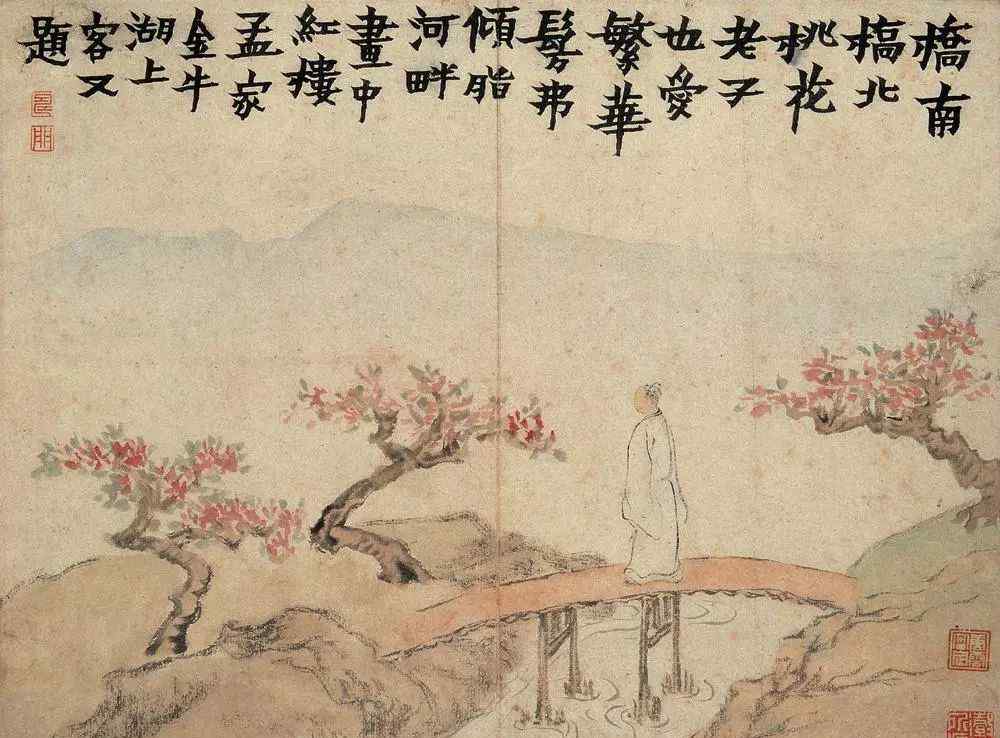 橋南
槁北
桃花
老子
也愛
繁華
髣弗
傾脂
河畔
畫中
紅樓
孟家
金牛
湖上
客又
題